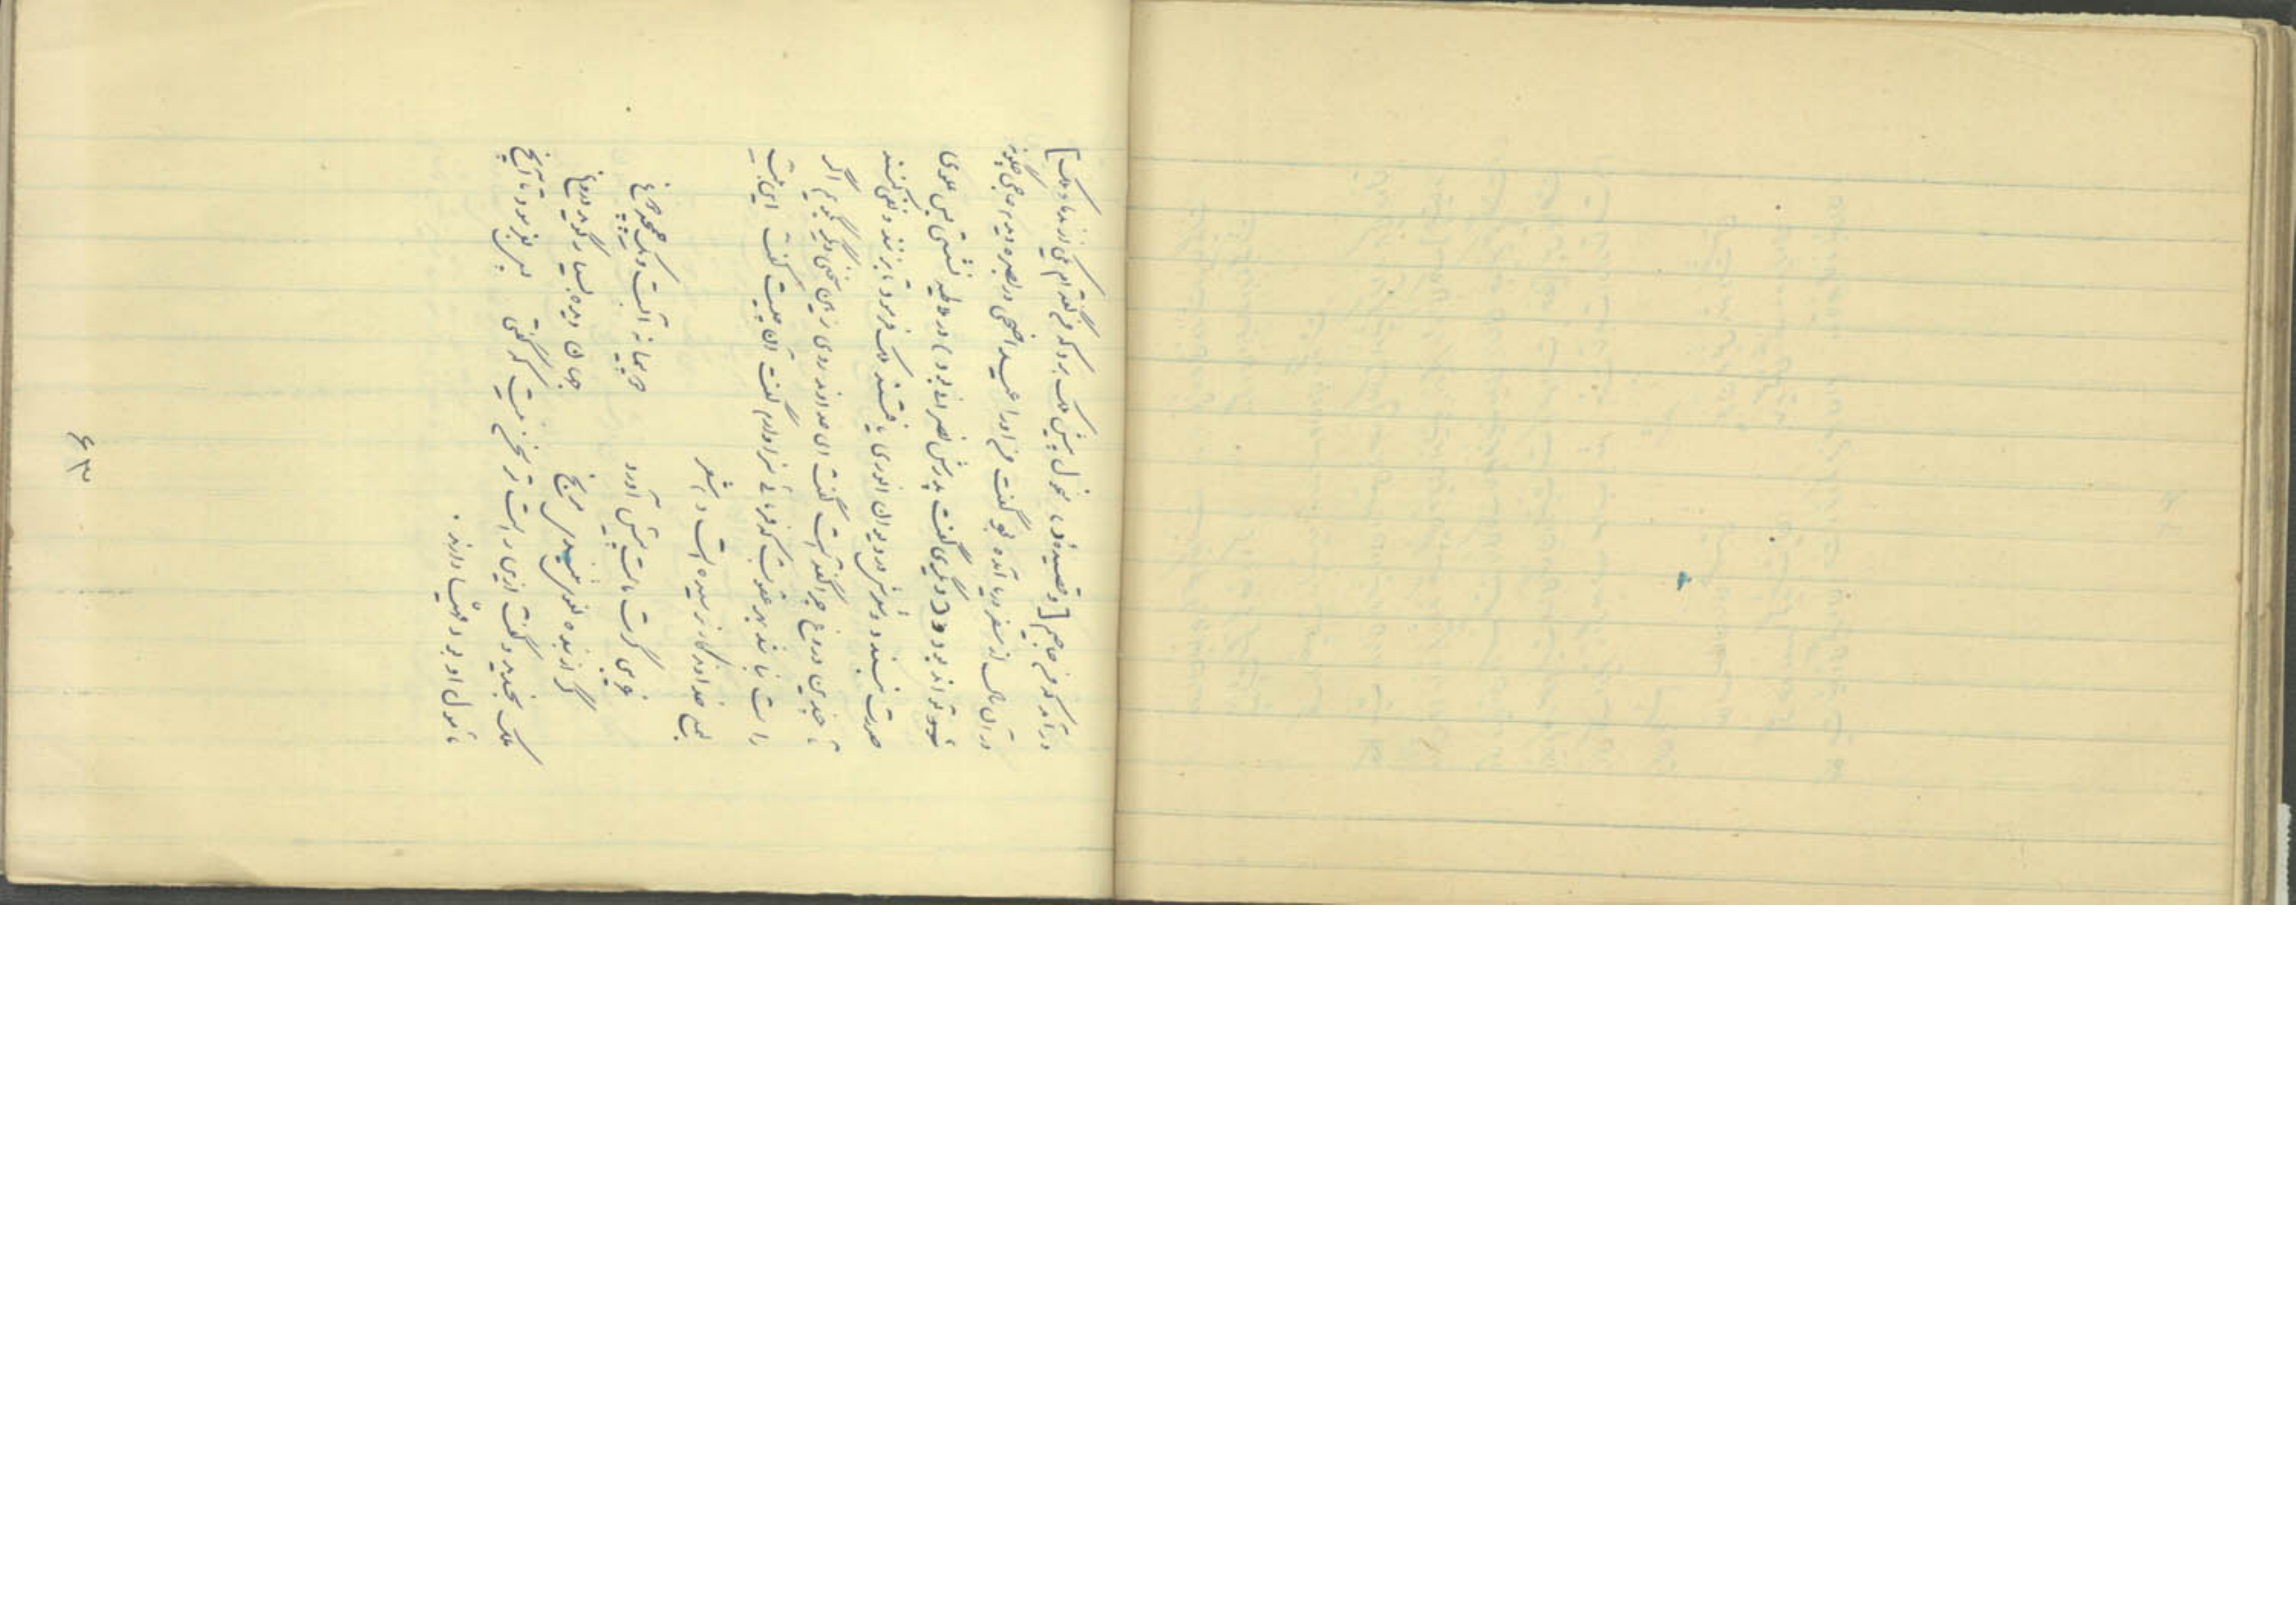 درآمد که من حاجیم [و قصیدهٔ غزل پیش ملک برد که من گفته‌ام یکی از ندماء ملک]
در آن سال از سفر دریا آمده بود گفت من او را عید اضحی در بصره دیدم حاجی چگونه
تواند بود (دیگری گفت پدرش نصرانی بود) در ملاطیه نشستی پس علوی
صورت نبندد و شعرش در دیوان انوری یافتند ملک فرمود تا بزنند و نفی کنند
تا چندین دروغ چرا گفته است گفت ای خداوند روی زمین سخنی دیگر بگویم اگر
راست نباشد بهر عقوبت که فرمائی سزاوارم گفت آن چیست گفت این بیت
بسمع خداوندگار نرسیده است، شعر
غریبی گرت ماست پیش آورد
دو پیمانه آبست و یک چمچه دوغ
گر از بنده لغوی شنیدی مرنج
جهان دیده بسیار گوید دروغ
ملک بخندید و گفت ازین راست‌تر سخن نیست که گفتی پس بفرمود تا آنچ
مأمول او بود مهیا دارند.
۶۳